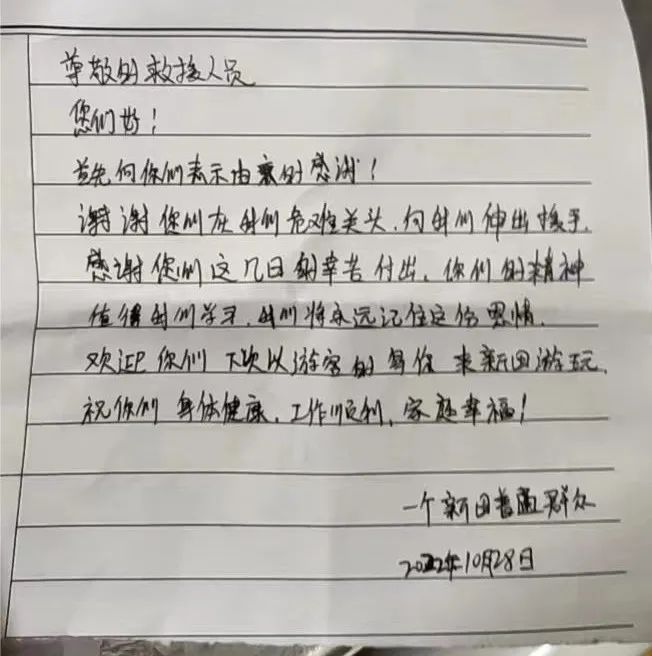 尊敬的救援人员
您们好！
首先向你们表示由衷的感谢！
谢谢您们在我们危难关头，向我们伸出援手，
感谢您们这几日的辛苦付出，你们的精神
值得我们学习，我们将永远记住这份恩情，
欢迎你们下次以游客的身份来新田游玩，
祝你们身体健康，工作顺利，家庭幸福！
一个新田普通群众
2022年10月28日